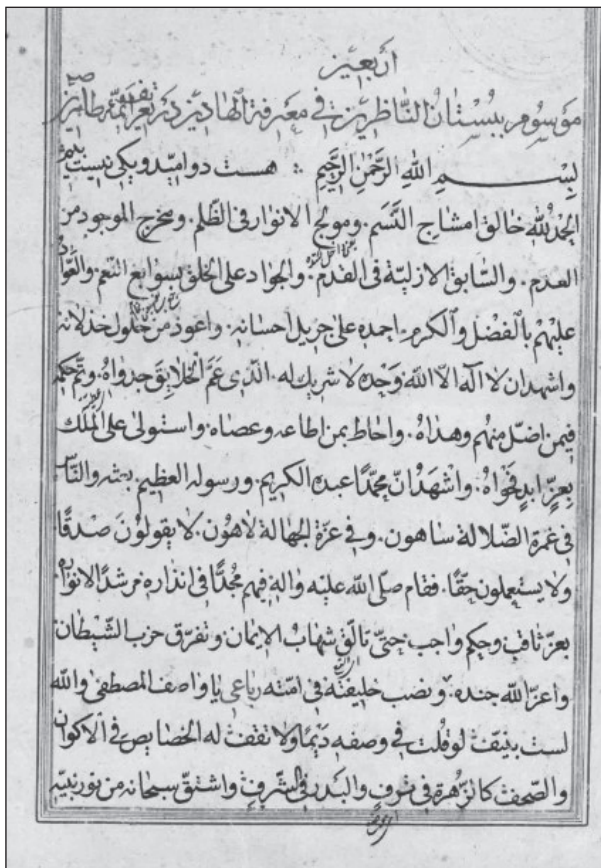 اربعين
موسوم ببستان الناظرين في معرفة الهادين
بسم الله الرحمن الرحيم هست دو اميد و يكى نيست بيم
الحمد لله خالق امشاج النَّسَم. ومولج الانوار فى الظُّلم. ومخرج الموجود من
العدم. والسّابق الازليّة فى القدم. والجواد على الخلق بسوابغ النعم. والعوّاد
عليهم بالفضل والكرم. احمده على جزيل احسانه. واعوذ من حلول خذلانه
واشهد ان لا اله الّا الله وحده لا شريك له. الذى عمّ الخلايق جدواه. وتمّ حكمه
فيمن اضلّ منهم وهداه. واحاط بمن اطاعه وعصاه. واستولى على الملك
بعزّ ابد فحواه. واشهد انّ محمّدًا عبده الكريم. ورسوله العظيم. والناس
فى غمرة الضّلالة ساهون. وفى عزّة الجهالة لاهون. لا يقولون صدقًا
ولا يستعملون حقّا. فقام صلّى الله عليه واله فيهم مُجدًّا فى انذاره مرشدًا لانواره
بعزّ ثاقب وحكم واجب حتىّ تالّق شهاب الايمان وتفرّق حزب الشّيطان
واعزّ الله جنده. ونصب خليفته فى امّته رباعى يا واصف المصطفى والله
لست لو قلت فى وصفه ولا تقف له الخصايص فى الاكوان
والصّحف كالزّهرة فى ترف والبدر فى شرف واشتقّ سبحانه من نور نبيّه